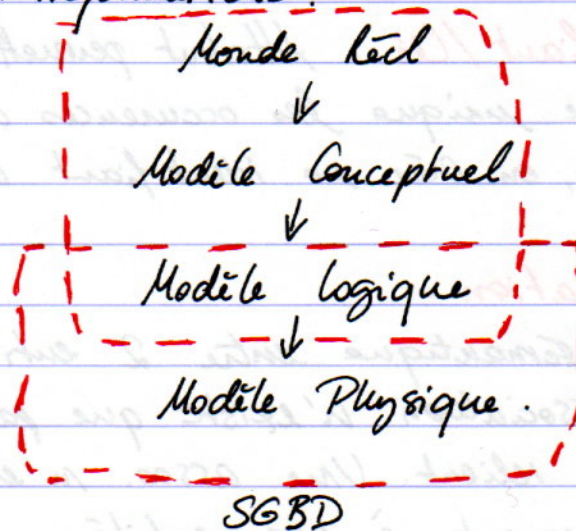 Monde Réel
↓
Modèle Conceptuel
↓
Modèle Logique
↓
Modèle Physique.
SGBD